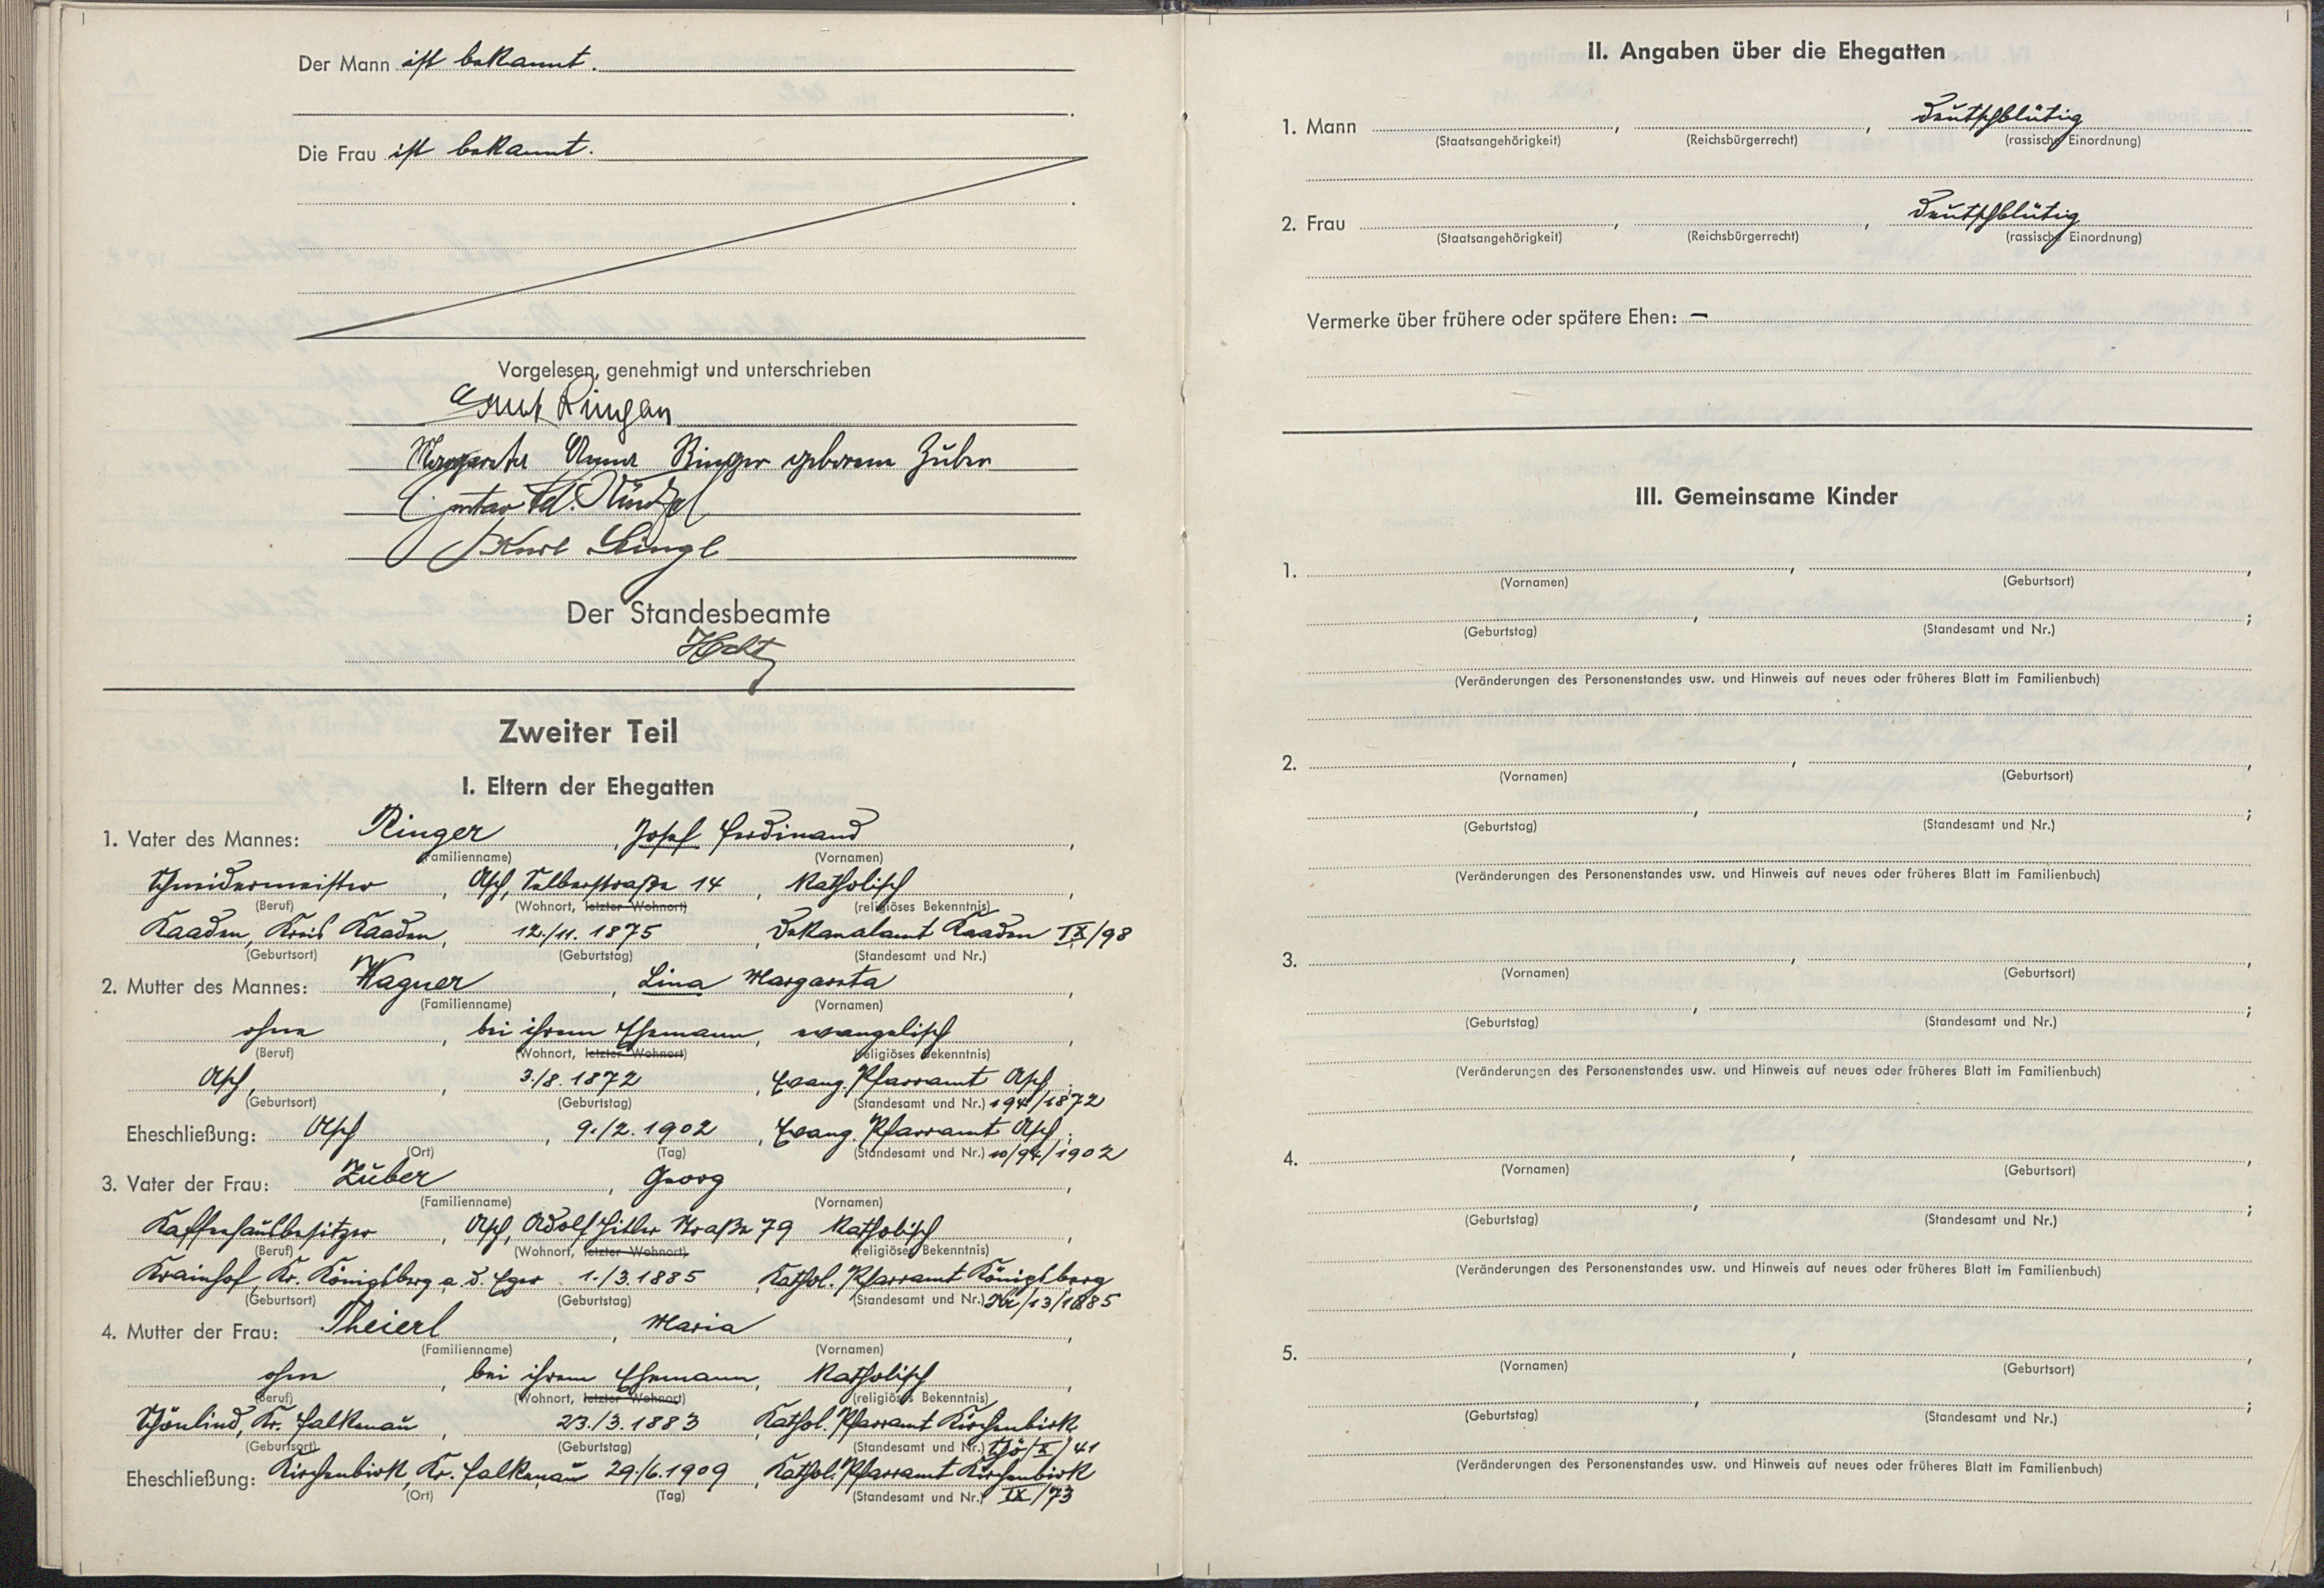 Der Mann ist bekannt.
Die Frau ist bekannt.
Vorgelesen, genehmigt und unterschrieben
Ernst Ringer
Margareta Anna Ringer geborene Zuber
Gustav
Karl
Der Standesbeamte
Zweiter Teil
I. Eltern der Ehegatten
1. Vater des Mannes: Ringer, Josef Ferdinand,
(Familienname) (Vornamen)
Schneidermeister, Asch, Selberstraße 14, katholisch,
(Beruf) (Wohnort, letzter Wohnort) (religiöses Bekenntnis)
Kaaden, Kreis Kaaden, 12./11. 1875, Dekanalamt Kaaden IX/98
(Geburtsort) (Geburtstag) (Standesamt und Nr.)
2. Mutter des Mannes: Wagner, Lina Margareta,
(Familienname) (Vornamen)
ohne, bei ihrem Ehemann, evangelisch,
(Beruf) (Wohnort, letzter Wohnort) (religiöses Bekenntnis)
Asch, 3./8. 1872, Evang. Pfarramt Asch;
(Geburtsort) (Geburtstag) (Standesamt und Nr.) 194/1872
Eheschließung: Asch, 9./2. 1902, Evang. Pfarramt Asch;
(Ort) (Tag) (Standesamt und Nr.) 10/94/1902
3. Vater der Frau: Zuber, Georg,
(Familienname) (Vornamen)
Kaffeehausbesitzer, Asch, Adolf Hitler Straße 79 katholisch,
(Beruf) (Wohnort, letzter Wohnort) (religiöses Bekenntnis)
Krainhof, Kr. Königsberg a. d. Eger 1./3. 1885, Kathol. Pfarramt Königsberg
(Geburtsort) (Geburtstag) (Standesamt und Nr.) Kr/13/1885
4. Mutter der Frau: Theierl, Maria,
(Familienname) (Vornamen)
ohne, bei ihrem Ehemann, katholisch,
(Beruf) (Wohnort, letzter Wohnort) (religiöses Bekenntnis)
Schönlind, Kr. Falkenau, 23./3. 1883, Kathol. Pfarramt Kirchenbirk
(Geburtsort) (Geburtstag) (Standesamt und Nr.) Schö/X/41
Eheschließung: Kirchenbirk, Kr. Falkenau 29./6. 1909, Kathol. Pfarramt Kirchenbirk
(Ort) (Tag) (Standesamt und Nr.) IX/73
II. Angaben über die Ehegatten
1. Mann , , deutschblütig
(Staatsangehörigkeit) (Reichsbürgerrecht) (rassische Einordnung)
2. Frau , , deutschblütig
(Staatsangehörigkeit) (Reichsbürgerrecht) (rassische Einordnung)
Vermerke über frühere oder spätere Ehen: –
III. Gemeinsame Kinder
1. , ,
(Vornamen) (Geburtsort)
, ;
(Geburtstag) (Standesamt und Nr.)
(Veränderungen des Personenstandes usw. und Hinweis auf neues oder früheres Blatt im Familienbuch)
2. , ,
(Vornamen) (Geburtsort)
, ;
(Geburtstag) (Standesamt und Nr.)
(Veränderungen des Personenstandes usw. und Hinweis auf neues oder früheres Blatt im Familienbuch)
3. , ,
(Vornamen) (Geburtsort)
, ;
(Geburtstag) (Standesamt und Nr.)
(Veränderungen des Personenstandes usw. und Hinweis auf neues oder früheres Blatt im Familienbuch)
4. , ,
(Vornamen) (Geburtsort)
, ;
(Geburtstag) (Standesamt und Nr.)
(Veränderungen des Personenstandes usw. und Hinweis auf neues oder früheres Blatt im Familienbuch)
5. , ,
(Vornamen) (Geburtsort)
, ;
(Geburtstag) (Standesamt und Nr.)
(Veränderungen des Personenstandes usw. und Hinweis auf neues oder früheres Blatt im Familienbuch)